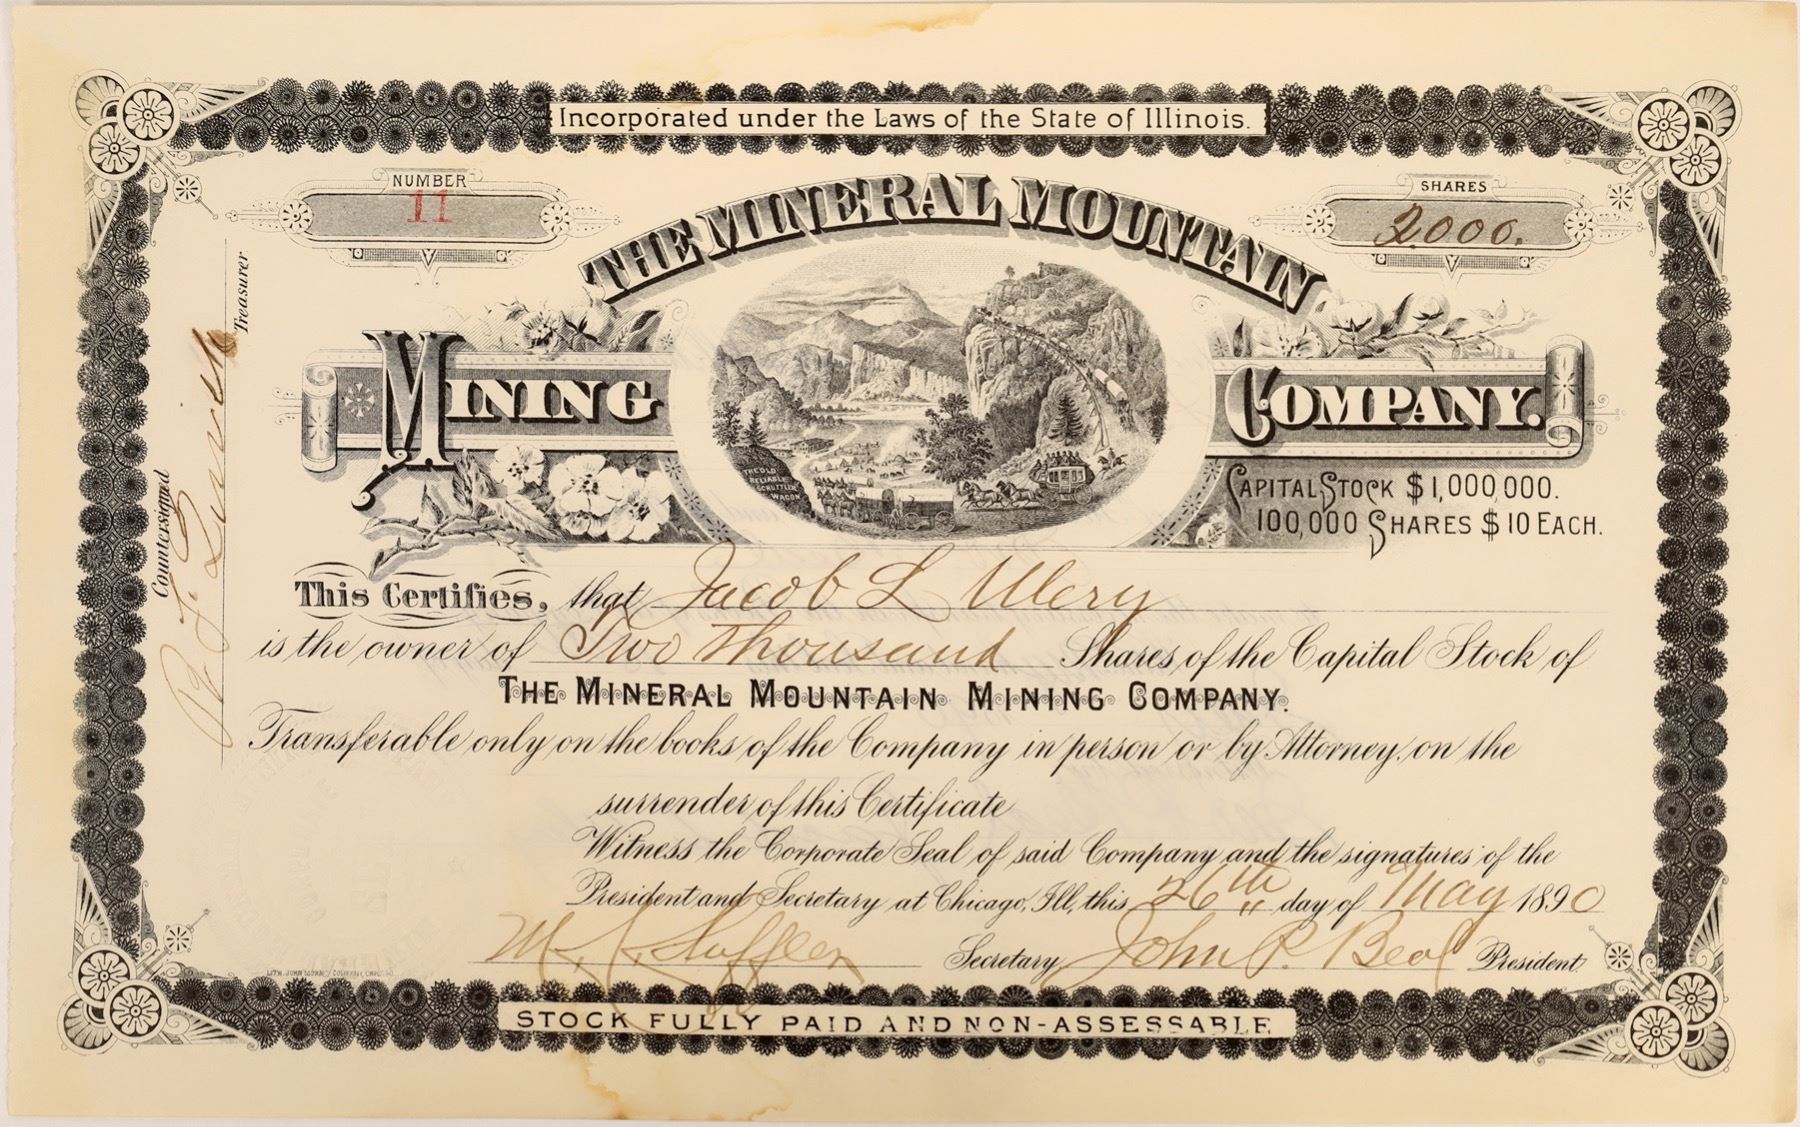 Incorporated under the Laws of the State of Illinois.
NUMBER
11
SHARES
2,000.
THE MINERAL MOUNTAIN
MINING COMPANY.
THE OLD
RELIABLE
SCHUTTLER
WAGON
CAPITAL STOCK $1,000,000.
100,000 SHARES $10 EACH.
This Certifies, that Jacob L Ulery
is the owner of Two Thousand Shares of the Capital Stock of
THE MINERAL MOUNTAIN MINING COMPANY.
Transferable only on the books of the Company in person or by Attorney on the
surrender of this Certificate
Witness the Corporate Seal of said Company and the signatures of the
President and Secretary at Chicago, Ill, this 26th day of May 1890
Secretary John P. Beal President
STOCK FULLY PAID AND NON-ASSESSABLE
Countersigned
Treasurer